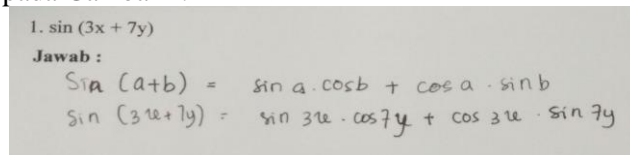 1. sin (3x + 7y)
Jawab :
Sin (a+b) = sin a . cosb + cos a . sin b
Sin (3x+7y) = sin 3x . cos7y + cos 3x . sin 7y